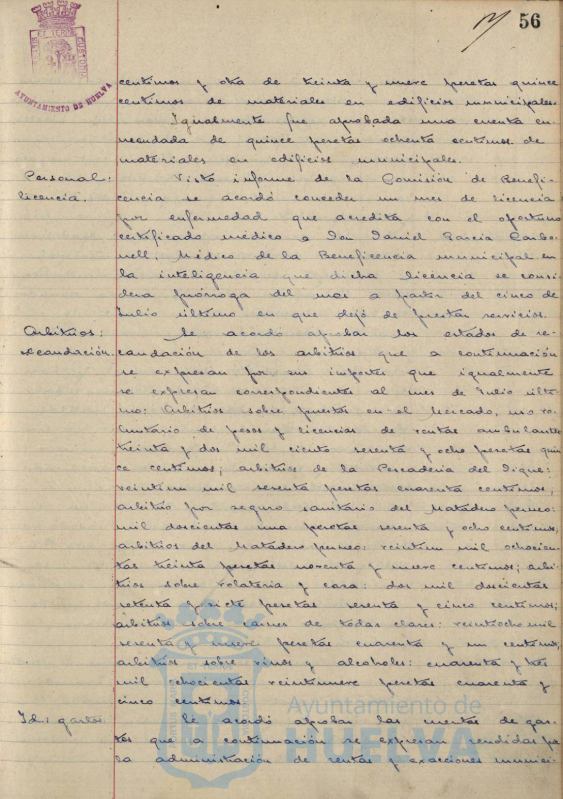 56
AYUNTAMIENTO DE HUELVA
centimos y otra de treinta y nueve pesetas quince
centimos de materiales en edificios municipales.
Igualmente fue aprobada una cuenta en-
mendada de quince pesetas ochenta centimos de
materiales en edificios municipales.
Personal:
licencia.
Visto informe de la Comisión de Benefi-
cencia se acordó conceder un mes de licencia
por enfermedad que acredita con el oportuno
certificado médico a Don Daniel Garcia Carbo-
nell, Médico de la Beneficencia municipal en
la inteligencia que dicha licencia se consi-
dera prórroga del mes a partir del cinco de
Julio último en que dejó de prestar servicios.
Arbitrios:
recaudación.
Se acordó aprobar los estados de re-
caudación de los arbitrios que a continuación
se expresan por sus importes que igualmente
se expresan correspondientes al mes de Julio últi-
mo: Arbitrios sobre puestos en el Mercado, uso vo-
luntario de pesos y licencias de ventas ambulantes
treinta y dos mil ciento setenta y ocho pesetas quin
ce centimos; arbitrios de la Pescaderia del Dique:
veintiun mil setenta pesetas cuarenta centimos;
arbitrio por seguro sanitario del Matadero porcno:
mil doscientas una pesetas setenta y ocho centimos;
arbitrios del Matadero : veintiun mil ochocien-
tas treinta pesetas noventa y nueve centimos; arbi-
trios sobre volateria y caza: dos mil doscientas
setenta y siete pesetas setenta y cinco centimos;
arbitrios sobre carnes de todas clases: veintiocho mil
setenta y nueve pesetas cuarenta y un centimos;
arbitrios sobre vinos y alcoholes: cuarenta y tres
mil ochocientas veintinueve pesetas cuarenta y
cinco centimos.
Id: gastos.
Se acordó aprobar las cuentas de gas-
tos que a continuación se expresan rendidas por
la administración de rentas y exacciones munici-
Ayuntamiento de
HUELVA